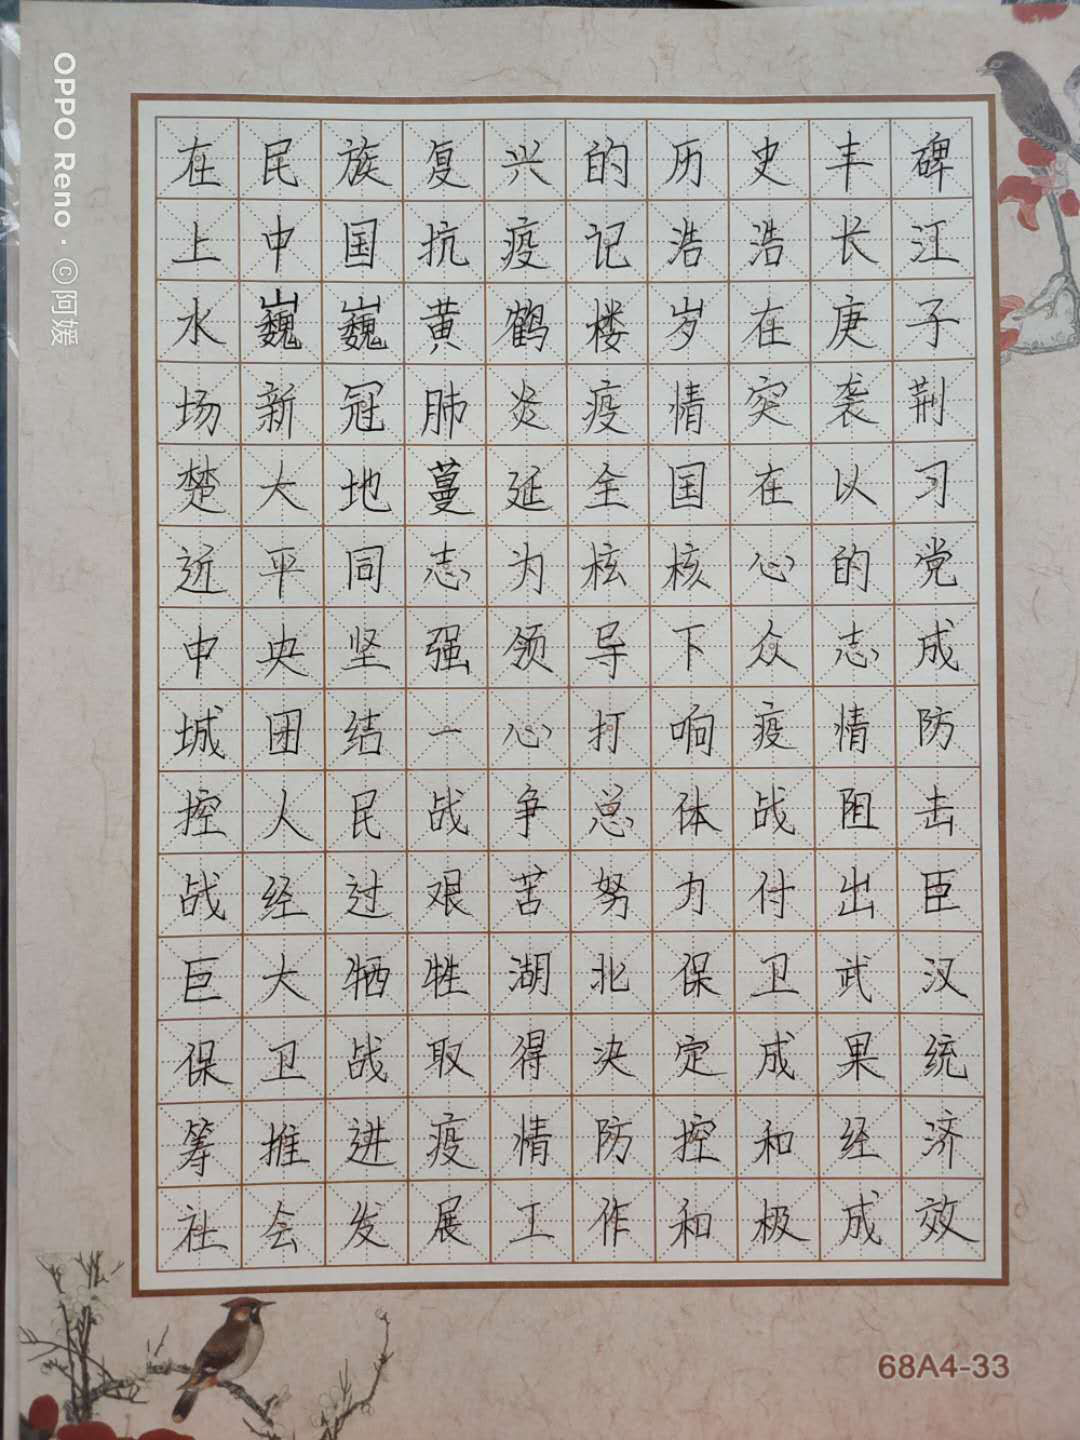 OPPO Reno · ©阿媛
在民族复兴的历史丰碑
上中国抗疫记浩浩长江
水巍巍黄鹤楼岁在庚子
场新冠肺炎疫情突袭荆
楚大地蔓延全国在以习
近平同志为核核心的党
中央坚强领导下众志成
城团结一心打响疫情防
控人民战争总体战阻击
战经过艰苦努力付出臣
巨大牺牲湖北保卫武汉
保卫战取得决定成果统
筹推进疫情防控和经济
社会发展工作和极成效
68A4-33